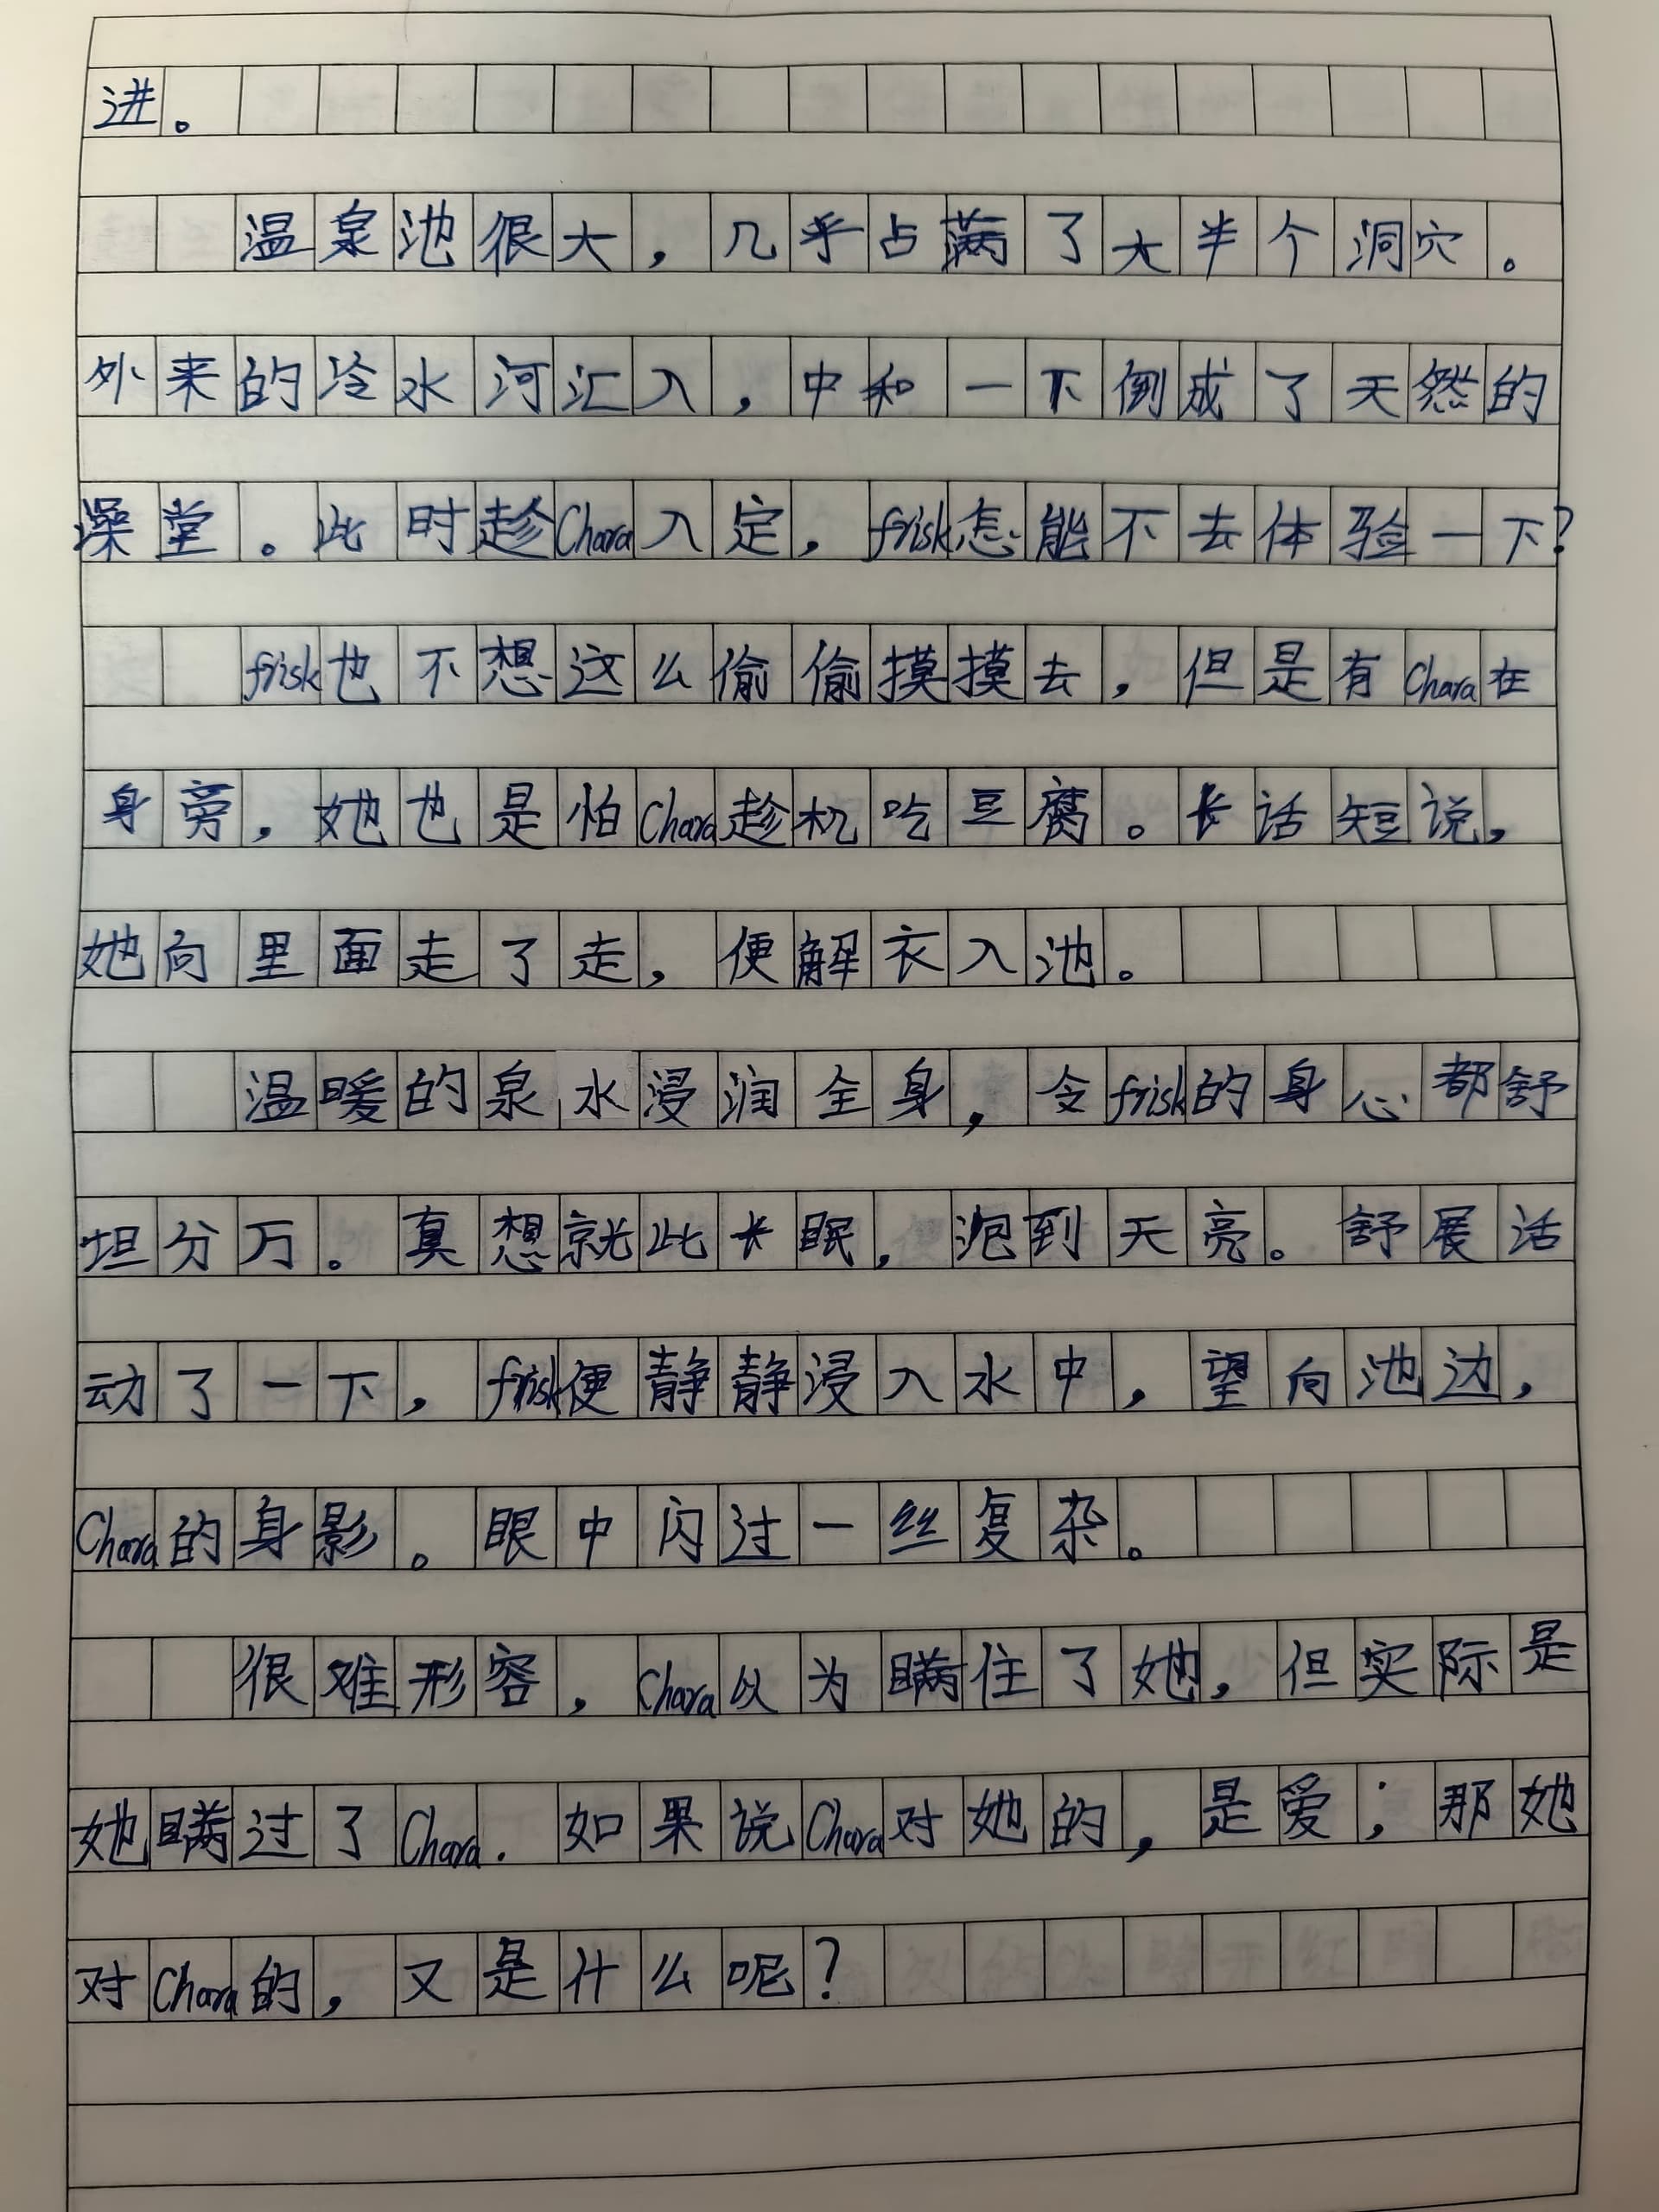 进。
温泉池很大，几乎占满了大半个洞穴。
外来的冷水河汇入，中和一下倒成了天然的
澡堂。此时趁Chara入定，frisk怎能不去体验一下？
frisk也不想这么偷偷摸摸去，但是有Chara在
身旁，她也是怕Chara趁机吃豆腐。长话短说，
她向里面走了走，便解衣入池。
温暖的泉水浸润全身，令frisk的身心都舒
坦分万。真想就此长眠，泡到天亮。舒展活
动了一下，frisk便静静浸入水中，望向池边，
Chara的身影。眼中闪过一丝复杂。
很难形容，Chara以为瞒住了她，但实际是
她瞒过了Chara. 如果说Chara对她的，是爱；那她
对Chara的，又是什么呢？